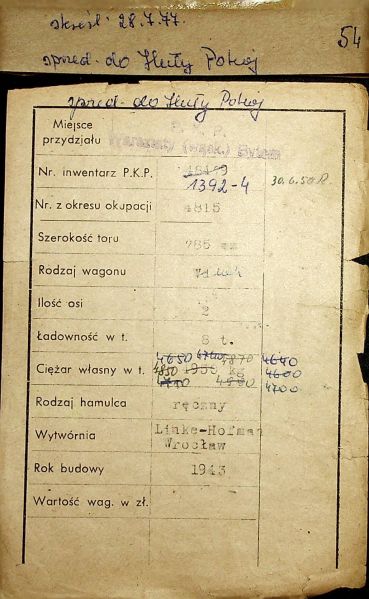 skreśl. 28.7.77.
54
sprzed. do Huty Pokój
sprzed. do Huty Pokój
Miejsce przydziału
P. K. P.
Warsztaty (wąsk.) Bytom
Nr. inwentarz P.K.P.
1392-4
30.6.50 R.
Nr. z okresu okupacji
4815
Szerokość toru
785 mm
Rodzaj wagonu
Ilość osi
2
Ładowność w t.
8 t.
Ciężar własny w t.
4650 4870 4640
4850 kg 4600
4700
Rodzaj hamulca
ręczny
Wytwórnia
Linke-Hofman
Wrocław
Rok budowy
1943
Wartość wag. w zł.